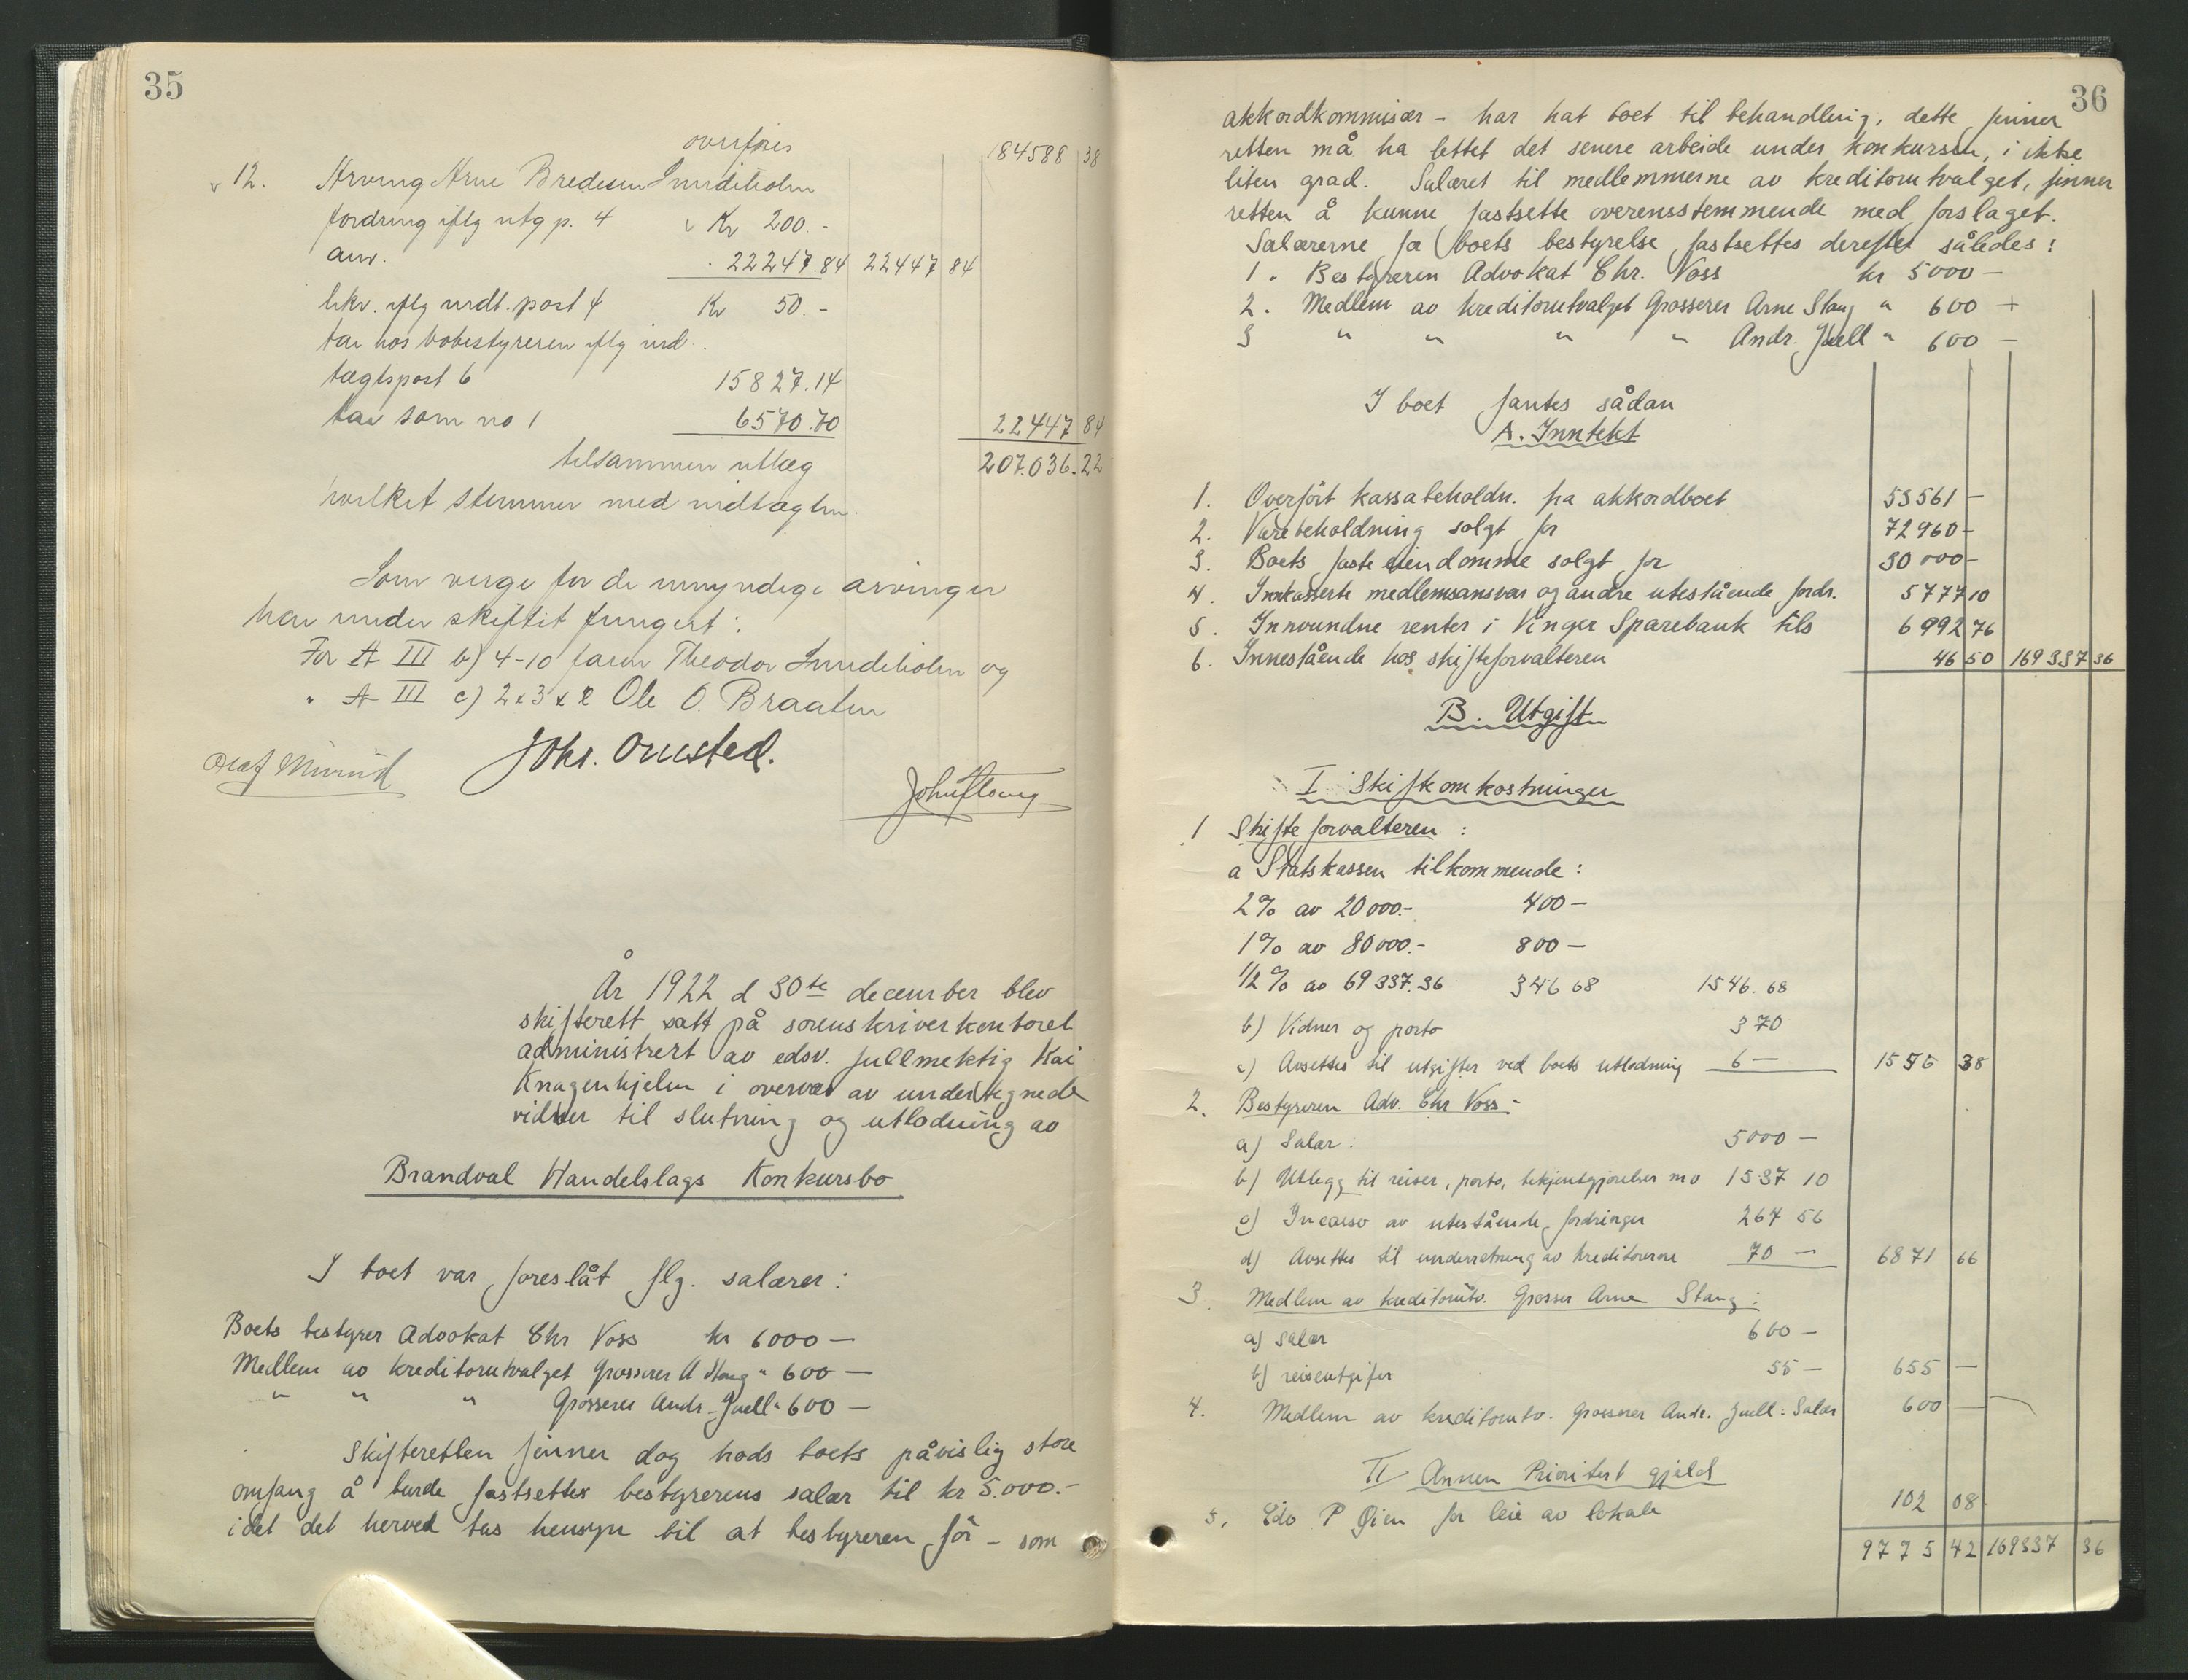 35
overføres 184588 38
v 12. Arving Arne Bredesen Lundeholm
fordring iflg utg p. 4 v Kr 200.-
arv. " 22247.84 22447 84
likv. iflg indt. post 4 Kr 50.-
tar hos bobestyreren iflg ind-
tægtspost 6 15827.14
tar som no 1 6570.70 22447 84
tilsammen utlæg 207.036.22
hvilket stemmer med indtægten.
Som verge for de umyndige arvinger
har under skiftet fungert:
For A III b) 4-10 faren Theodor Lundeholm og
" A III c) 2 & 3 Ole O. Braaten
Johs. Omsted.
År 1922 d 30te december blev
skifterett satt på sorenskriverkontoret
administrert av edsv. fullmektig Kai
Knagenhjelm i overvær av undertegnede
vidner til slutning og utlodning av
Brandval Handelslags Konkursbo
I boet var foreslåt flg. salærer:
Boets bestyrer Advokat Chr Voss kr 6000 —
Medlem av kreditorutvalget Grosserer A Stang " 600 —
" " " Grosserer Andr. Juell " 600 —
Skifteretten finner dog trods boets påvislig store
omfang å burde fastsettes bestyrerens salær til kr 5.000.-
idet det herved tas hensyn til at bestyreren før - som
36
akkordkommisær - har hat boet til behandling, dette finner
retten må ha lettet det senere arbeide under konkursen, i ikke
liten grad. Salæret til medlemmerne av kreditorutvalget, finner
retten å kunne fastsette overensstemmende med forslaget.
Salærerne fa boets bestyrelse fastsettes derefter således:
1. Bestyreren Advokat Chr. Voss kr 5000 —
2. Medlem av kreditorutvalget Grosserer Arne Stang " 600 —
3 " " " " Andr. Juell " 600 —
I boet fantes sådan
A. Inntekt
1. Overført kassabeholdn. fra akkordboet 53561 —
2. Varebeholdning solgt for 72960 -
3. Boets faste eiendomme solgt for 30 000 -
4. Innkasserte medlemsansvar og andre utestående fordr. 5777 10
5. Innvundne renter i Vinger Sparebank tils 6992 76
6. Innestående hos skifteforvalteren 46 50 169 337 36
B. Utgift
I Skifteomkostninger
1 Skifteforvalteren :
a Statskassen tilkommende :
2% av 20 000.- 400 —
1% av 80 000.- 800 —
1/2% av 69 337.36 346 68 1546. 68
b) Vidner og porto 3 70
c) Avsettes til utgifter ved boets utlodning 6 — 1556 38
2. Bestyreren Adv. Chr Voss :
a) Salær : 5000 —
b) Utlegg til reiser, porto, bekjentgjørelser mv 1537 10
c) Incasso av utestående fordringer 264 56
d) Avsettes til underretning av kreditorerne 70 — 6871 66
3. Medlem av kreditorutv. Grosser Arne Stang :
a) salær 600 —
b) reiseutgifter 55 — 655 —
4. Medlem av kreditorutv. Grosserer Andr. Juell : Salær 600 —
II Annen Prioritert gjeld
5. P Øien for leie av lokale 102 08
9775 42 169337 36